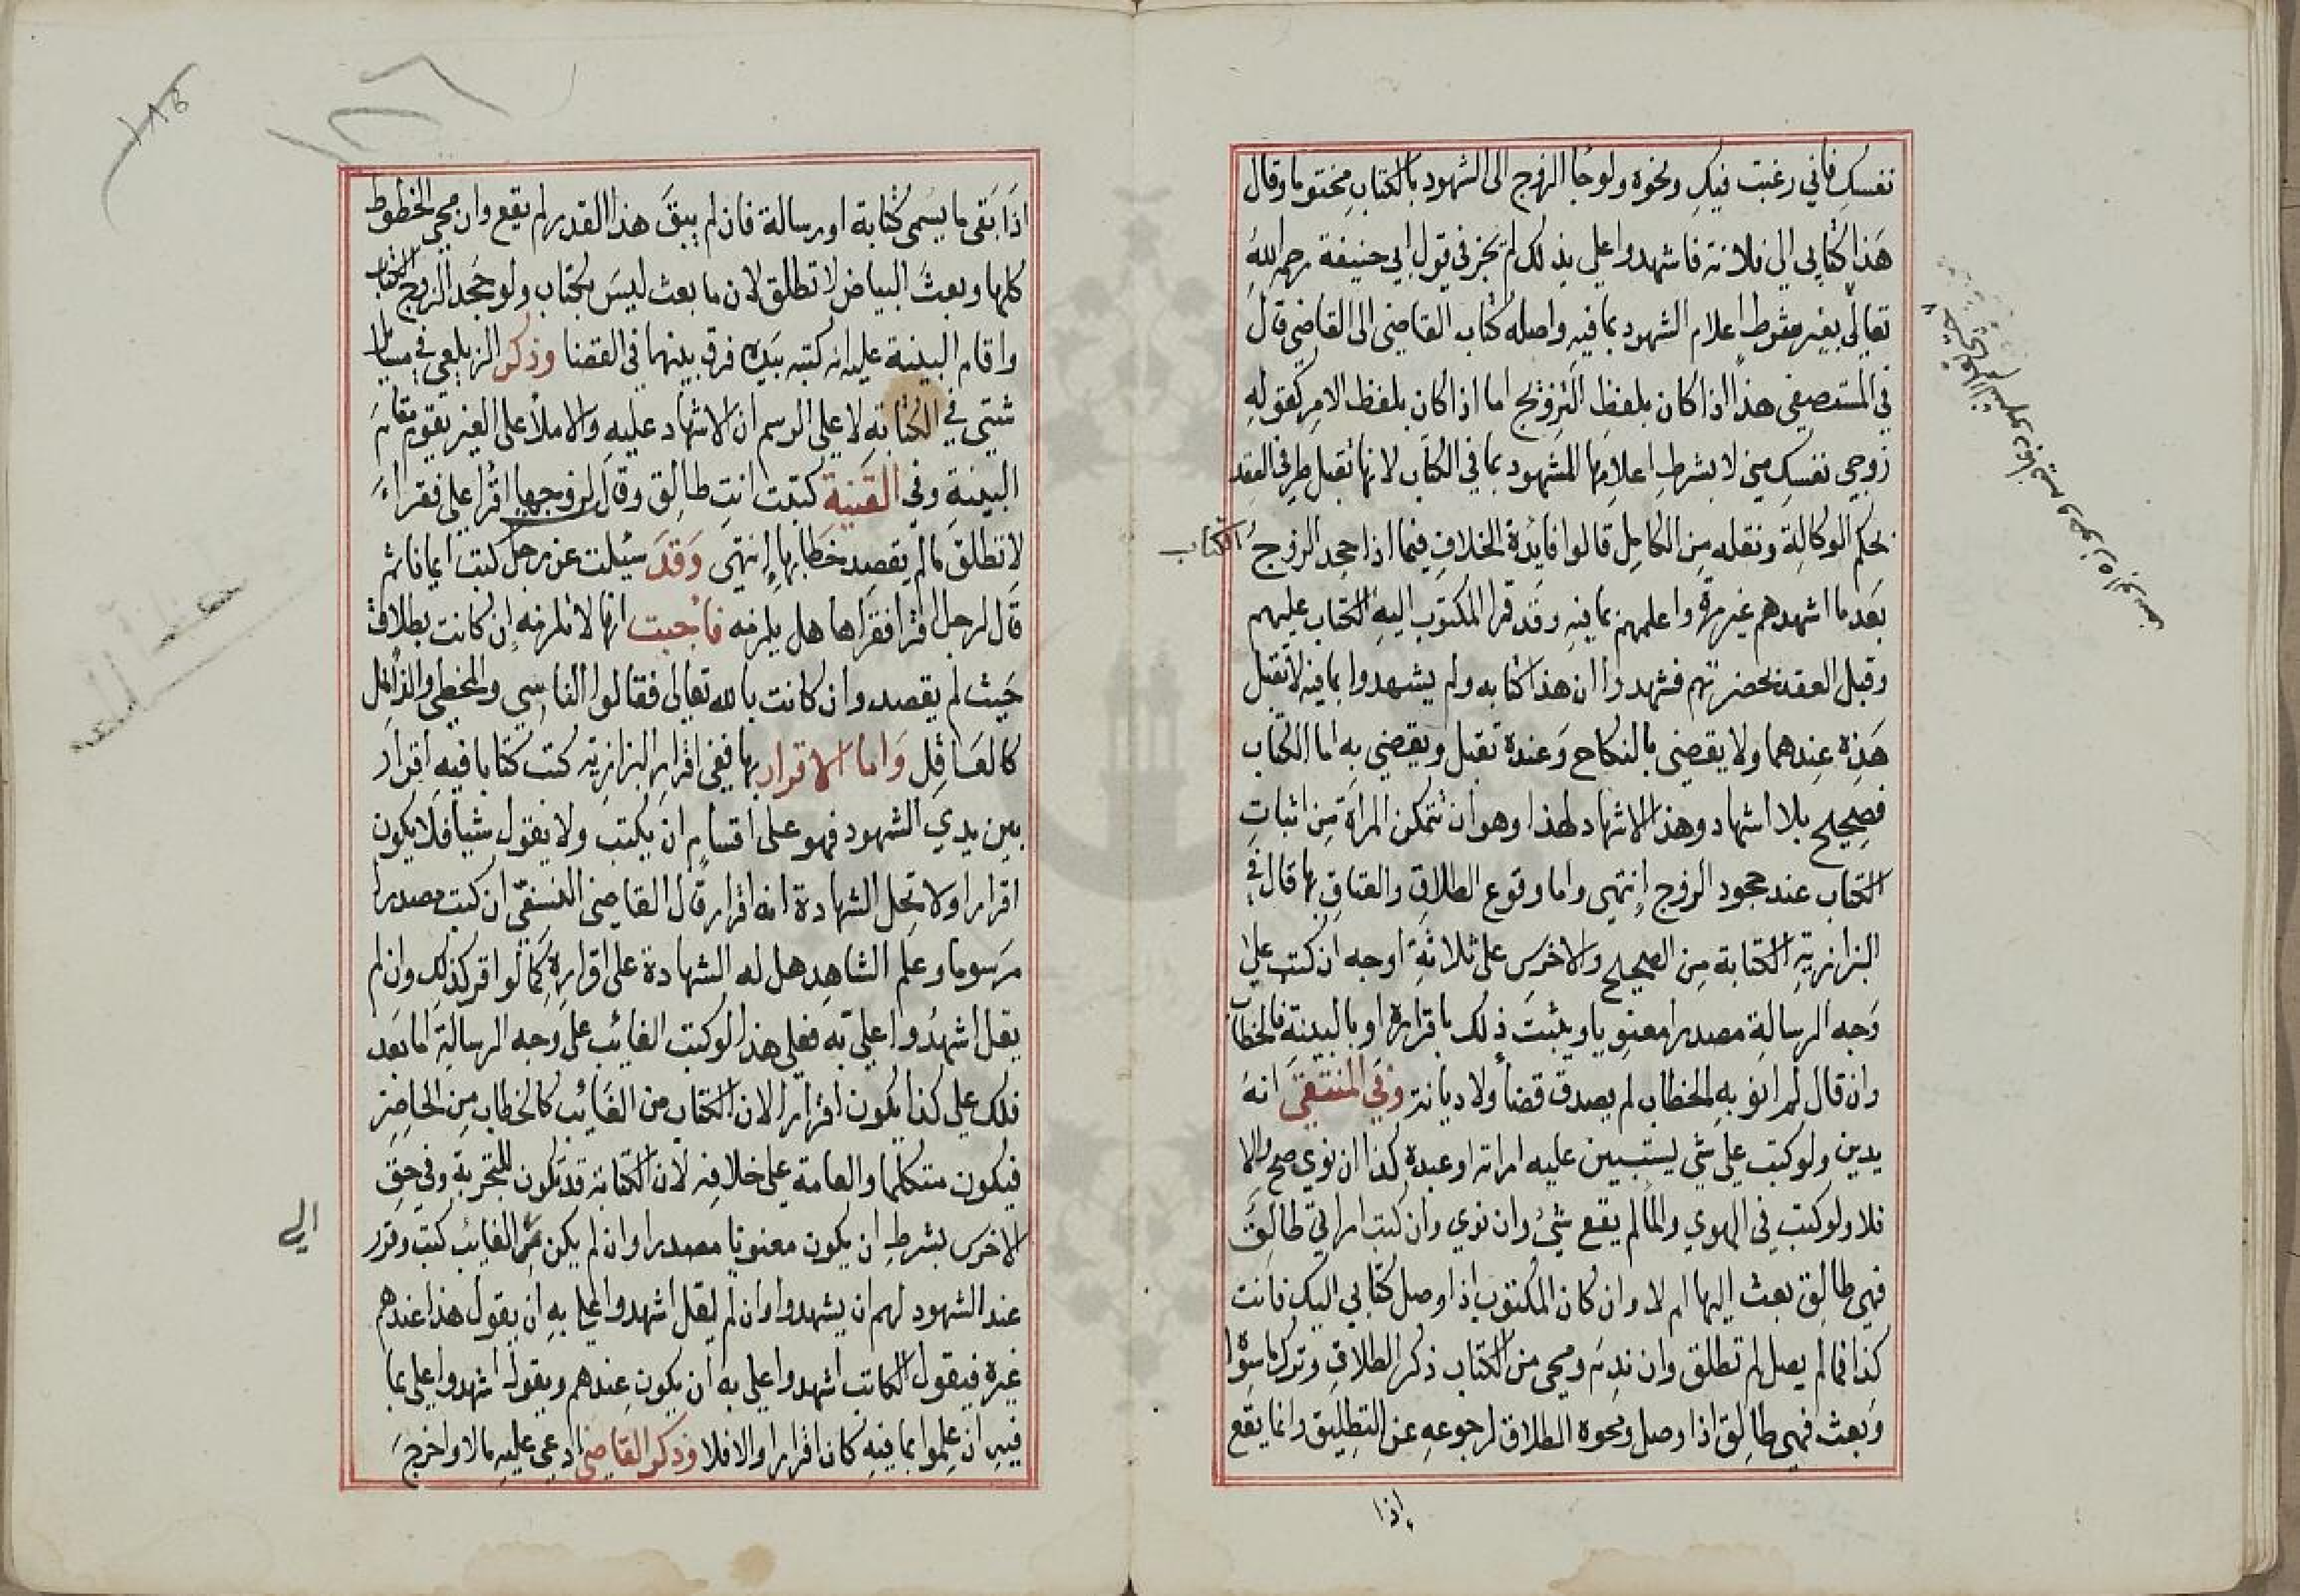 نفسك فاني رغبت فيك ونحوه ولو جا الزوج الى الشهود بالكتاب مختوما وقال
هذا كتابي الي فلانة فاشهدوا علي بذلك لم يجز في قول ابي حنيفة رحمه الله
تعالى بغير شرط اعلام الشهود بما فيه واصله كتاب القاضي الى القاضي قال
في المستصفى هذا اذا كان بلفظ التزوّيج اما اذا كان بلفظ الامر كقوله
زوجي نفسك مني لا بشرط اعلامها الشهود بما في الكتاب لانها تقبل طرفي العقد
بحكم الوكالة ونقله من الكامل قالوا فايدة الخلاف فيما اذا جحد الزوج الكتاب
بعد ما اشهدهم غيره واعلمهم بما فيه وقد قرا المكتوب اليه الكتاب عليهم
وقبل العقد بحضرتهم فشهدوا ان هذا كتابه ولم يشهدوا بما فيه لا تقبل
هذه عندهما ولا يقضي بالنكاح وعنده تقبل ويقضي به اما الكتاب
فصحيح بلا اشهاد وهذا الاشهاد لهذا وهو ان تتمكن المراة من اثبات
الكتاب عند جحود الزوج إنتهى واما وقوع الطلاق والعتاق بها قال في
البزازية الكتابة من الصحيح والاخرس على ثلاثة اوجه ان كتب علي
وجه الرسالة مصدرا معنويا ويثبت ذلك باقراره او بالبينة فالخطاب
وان قال لم انو به الخطاب لم يصدق قضأ ولا ديانة وفي المنتقى انه
يدين ولو كتب علي شي يستبين عليه امراته او عبده كذا ان نوي صح والا
فلا ولو كتب في الهوي والما لم يقع شئ وان نوي وان كتب امراتي طالق
فهي طالق بعث اليها ام لا وان كان المكتوب اذا وصل كتابي اليك فانت
كذا فما لم يصل لم تطلق وان ندم ومحى من الكتاب ذكر الطلاق وترك ما سواه
وبعث فهي طالق اذا وصل ونحوه الطلاق لرجوعه عن التطليق وانما يقع
إذا
اذا بقى ما يسمى كتابة او رسالة فان لم يبق هذا القدر لم يقع وان محي الخطوط
كلها وبعث البياض لا تطلق لان ما بعث ليس بكتاب ولو جحد الزوج الكتاب
واقام البينة عليه انه كتبه بيده فرق بينهما في القضا وذكر الزيلعي في مسايل
شتى في الكتابة لا على الرسم ان الاشهاد عليه والاملأ على الغير يقوم مقام
البينة وفي القنية كتبت انت طالق وقال لزوجها اقرأ علي فقرأ
لا تطلق ما لم يقصد خطابها إنتهى وقد سيلت عن رجل كتب ايمانا ثم
قال لرجل اقرا فقراها هل يلزمه فاجبت انها لا تلزمه ان كانت بطلاق
حيث لم يقصد وان كانت بالله تعالى فقالوا الناسي والمخطي والذاهل
كالعاقل واما الاقرار بها ففي اقرار البزازية كتب كتابا فيه اقرار
بين يدي الشهود فهو على اقسام ان يكتب ولا يقول شيأ فلا يكون
اقرارا ولا تحل الشهادة انه اقرار قال القاضي النسفي ان كتب مصدرا
مرسوما وعلم الشاهد هل له الشهادة على اقراره كما لو اقر كذلك وان لم
يقل اشهدوا علي به فعلى هذا لو كتب الغايب على وجه الرسالة اما بعد
فلك علي كذا يكون اقرارا لان الكتاب من الغايب كالخطاب من الحاضر
فيكون متكلما والعامة على خلافه لان الكتابة قد تكون للتجربة وفي حق
الاخرس بشرط ان يكون معنونا مصدرا وان لم يكن من الغايب كتب وقرر
عند الشهود لهم ان يشهدوا وان لم يقل اشهدوا علي به ان يقول هذا عندهم
غيره فيقول الكاتب اشهدوا علي به ان يكون عندهم ويقول اشهدوا علي بما
فيه ان علموا بما فيه كان اقرارا والا فلا وذكر القاضي ادعى عليه مالا واخرج
الي
١٨٤